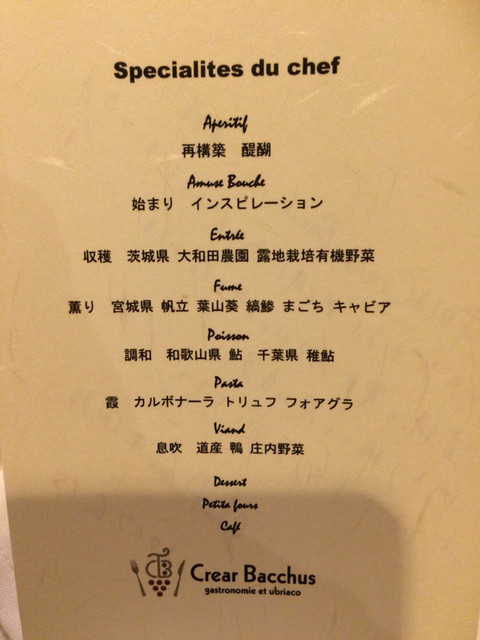 Specialites du chef
Aperitif
再構築　醍醐
Amuse Bouche
始まり　インスピレーション
Entrée
収穫　茨城県 大和田農園 露地栽培有機野菜
Fume
薫り　宮城県 帆立 葉山葵 縞鯵 まごち キャビア
Poisson
調和　和歌山県 鮎　千葉県 稚鮎
Pasta
霞　カルボナーラ トリュフ フォアグラ
Viand
息吹　道産 鴨 庄内野菜
Dessert
Petits fours
Café
Crear Bacchus
gastronomie et ubriaco